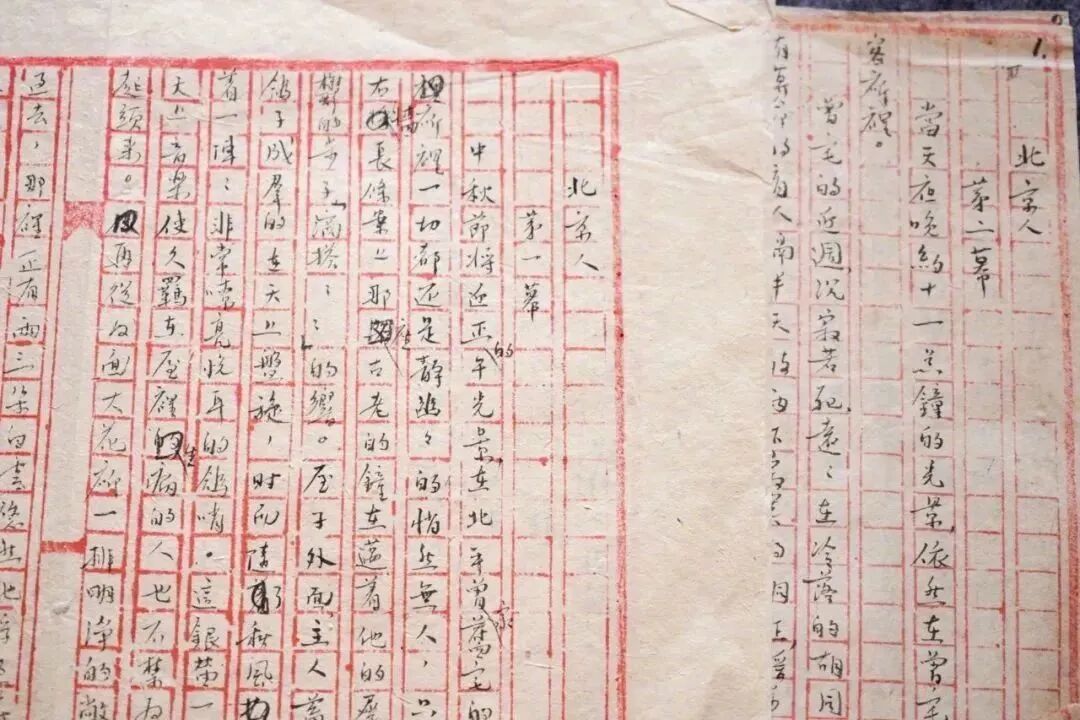 北京人
第一幕
中秋節將近正午的光景,在北平曾家舊宅的
廳裡一切都还是静幽々的悄然無人,只
右牆長條案上那座古老的鐘在遲着他的
的步子「滴搭〻〻」的響。屋子外面主人蓄
鴿子成羣的在天上盤旋,时而随着秋風
着一陣〻非常嘹亮悦耳的鴿哨。這銀笛一
天上音樂使久羈在屋裡生病的人也不禁为
起頭來。再從后面大花廳一排明净的敞
過去,那裡正有兩三朵白雲悠然地
1.
北京人
第二幕
當天夜晚約十一点鐘的光景,依然在曾宅
客廳裡。
曾宅的近週沉寂若死,遠〻在冷落的胡同